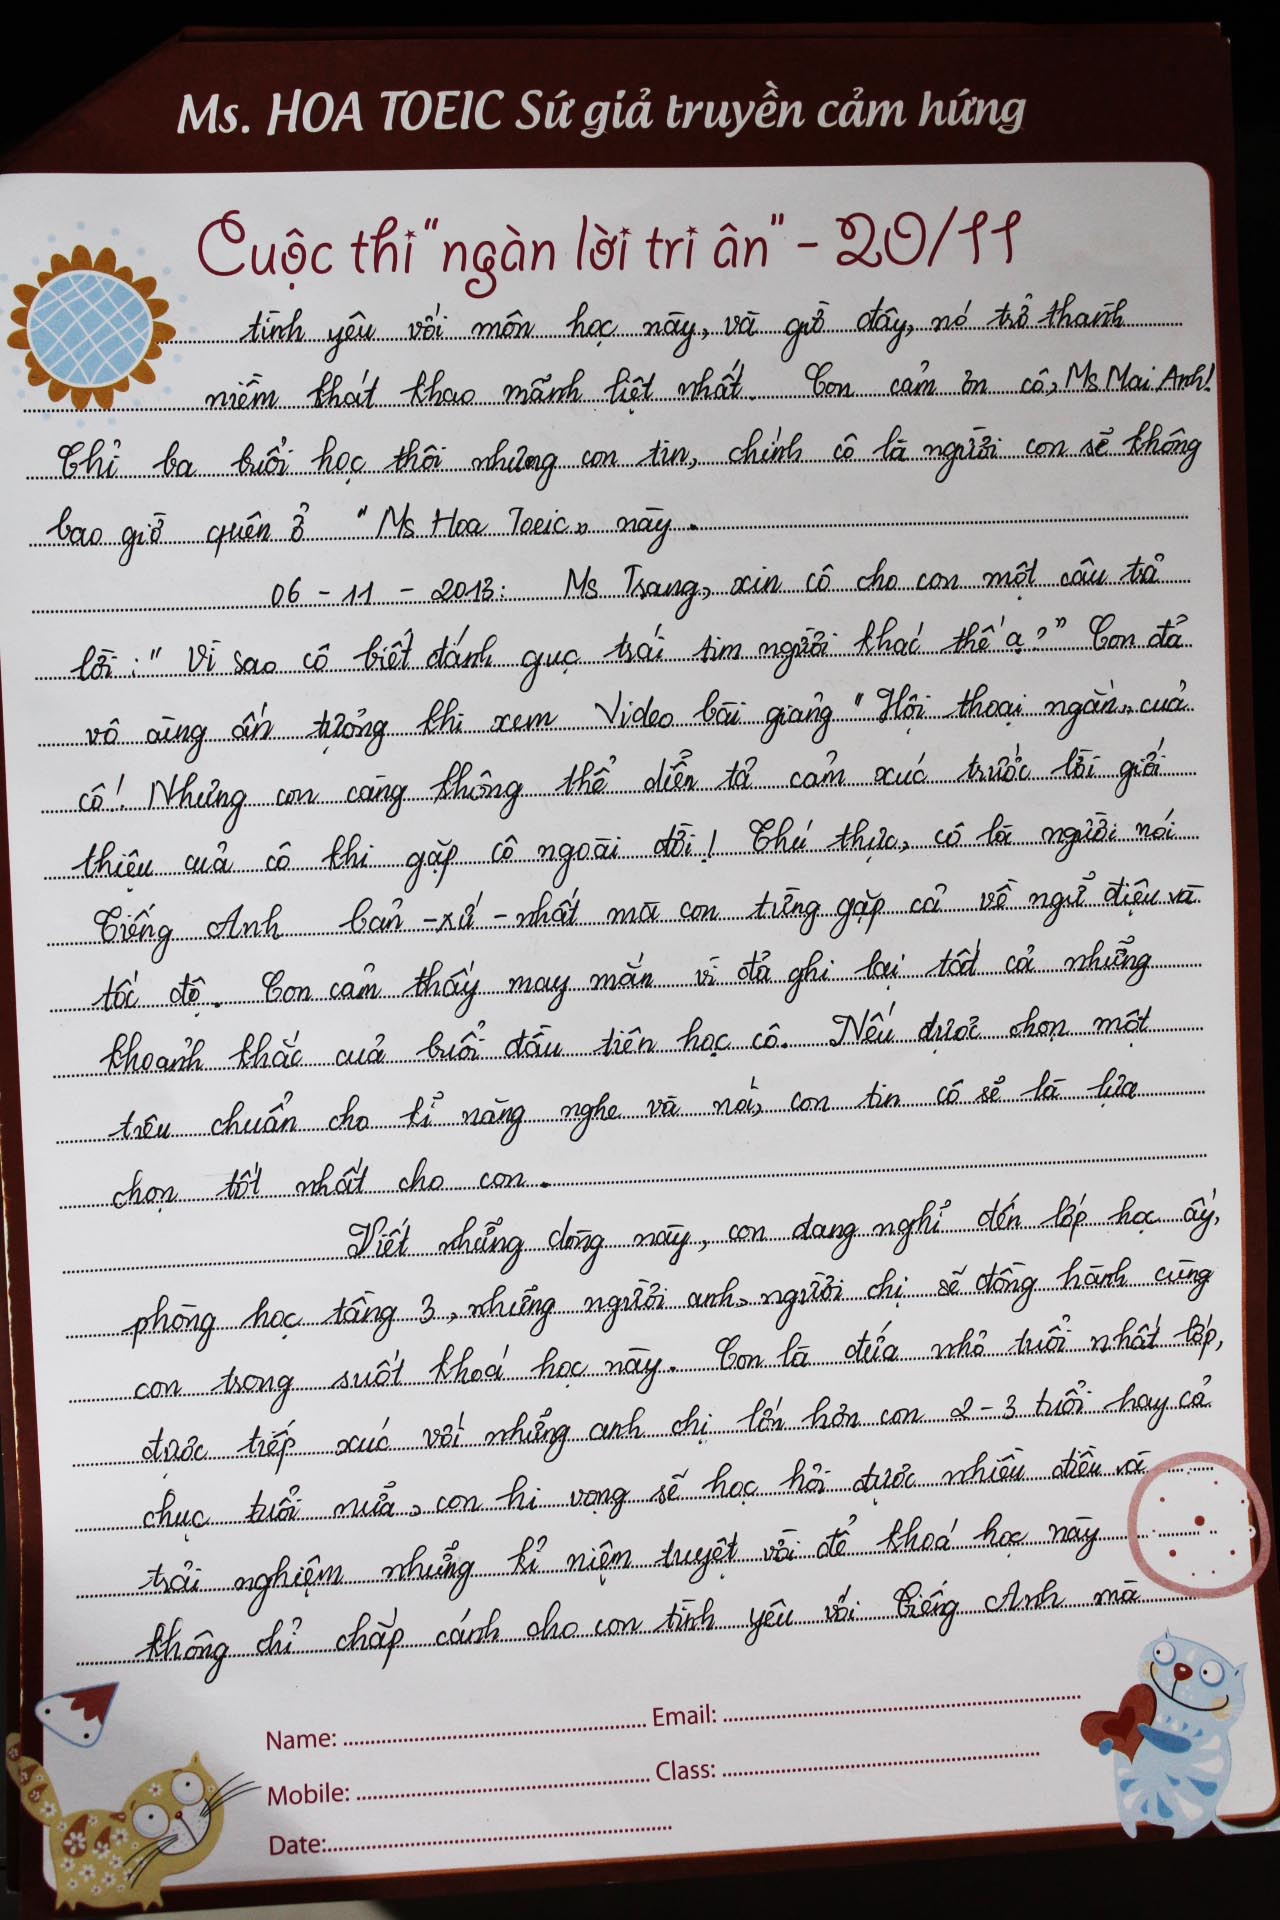 Ms. HOA TOEIC Sứ giả truyền cảm hứng
Cuộc thi "ngàn lời tri ân" - 20/11
tình yêu với môn học này, và giờ đây, nó trở thành
niềm khát khao mãnh liệt nhất. Con cảm ơn cô, Ms Mai Anh!
Chỉ ba buổi học thôi nhưng con tin, chính cô là người con sẽ không
bao giờ quên ở "Ms Hoa Toeic" này.
06 - 11 - 2013: Ms Trang, xin cô cho con một câu trả
lời: "Vì sao cô biết đánh gục trái tim người khác thế ạ?" Con đã
vô cùng ấn tượng khi xem Video bài giảng "Hội thoại ngắn" của
cô! Nhưng con càng không thể diễn tả cảm xúc trước lời giới
thiệu của cô khi gặp cô ngoài đời! Thú thực, cô là người nói
Tiếng Anh bản-xứ-nhất mà con từng gặp cả về ngữ điệu và
tốc độ. Con cảm thấy may mắn vì đã ghi lại tất cả những
khoảnh khắc của buổi đầu tiên học cô. Nếu được chọn một
tiêu chuẩn cho kĩ năng nghe và nói, con tin cô sẽ là lựa
chọn tốt nhất cho con.
Viết những dòng này, con đang nghĩ đến lớp học ấy,
phòng học tầng 3, những người anh, người chị sẽ đồng hành cùng
con trong suốt khoá học này. Con là đứa nhỏ tuổi nhất lớp,
được tiếp xúc với những anh chị lớn hơn con 2-3 tuổi hay cả
chục tuổi nữa, con hi vọng sẽ học hỏi được nhiều điều và
trải nghiệm những kỉ niệm tuyệt vời để khoá học này
không chỉ chắp cánh cho con tình yêu với Tiếng Anh mà
Name: Email:
Mobile: Class:
Date: